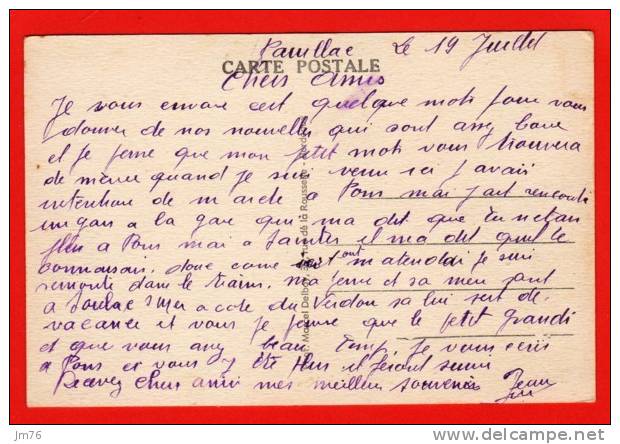 Pauillac Le 19 Juillet
CARTE POSTALE
Chers Amis
Je vous envoie cest quelque mots pour vous
donner de nos nouvelles qui sont assy bonne
et je pense que mon petit mots vous trouvera
de même quand je sui venu ici j avais
intention de a Pons mai jait rencontré
un gars a la gare qui ma dit que tu netais
plus a Pons mai a Saintes il ma dit quil te
connaisais, donc comme on matendai je sui
remonté dans le train. ma femme et sa mère sont
a Soulac s mer a coté du Verdon sa lui sert de
vacances et vous je pense que le petit grandi
et que vous avez beau temp. Je vous écris
a Pons si vous ny ete plus il feront suivre
Recevez Chers amis mes meilleurs souvenirs Jean
Marcel Delboy
jm76
www.delcampe.net